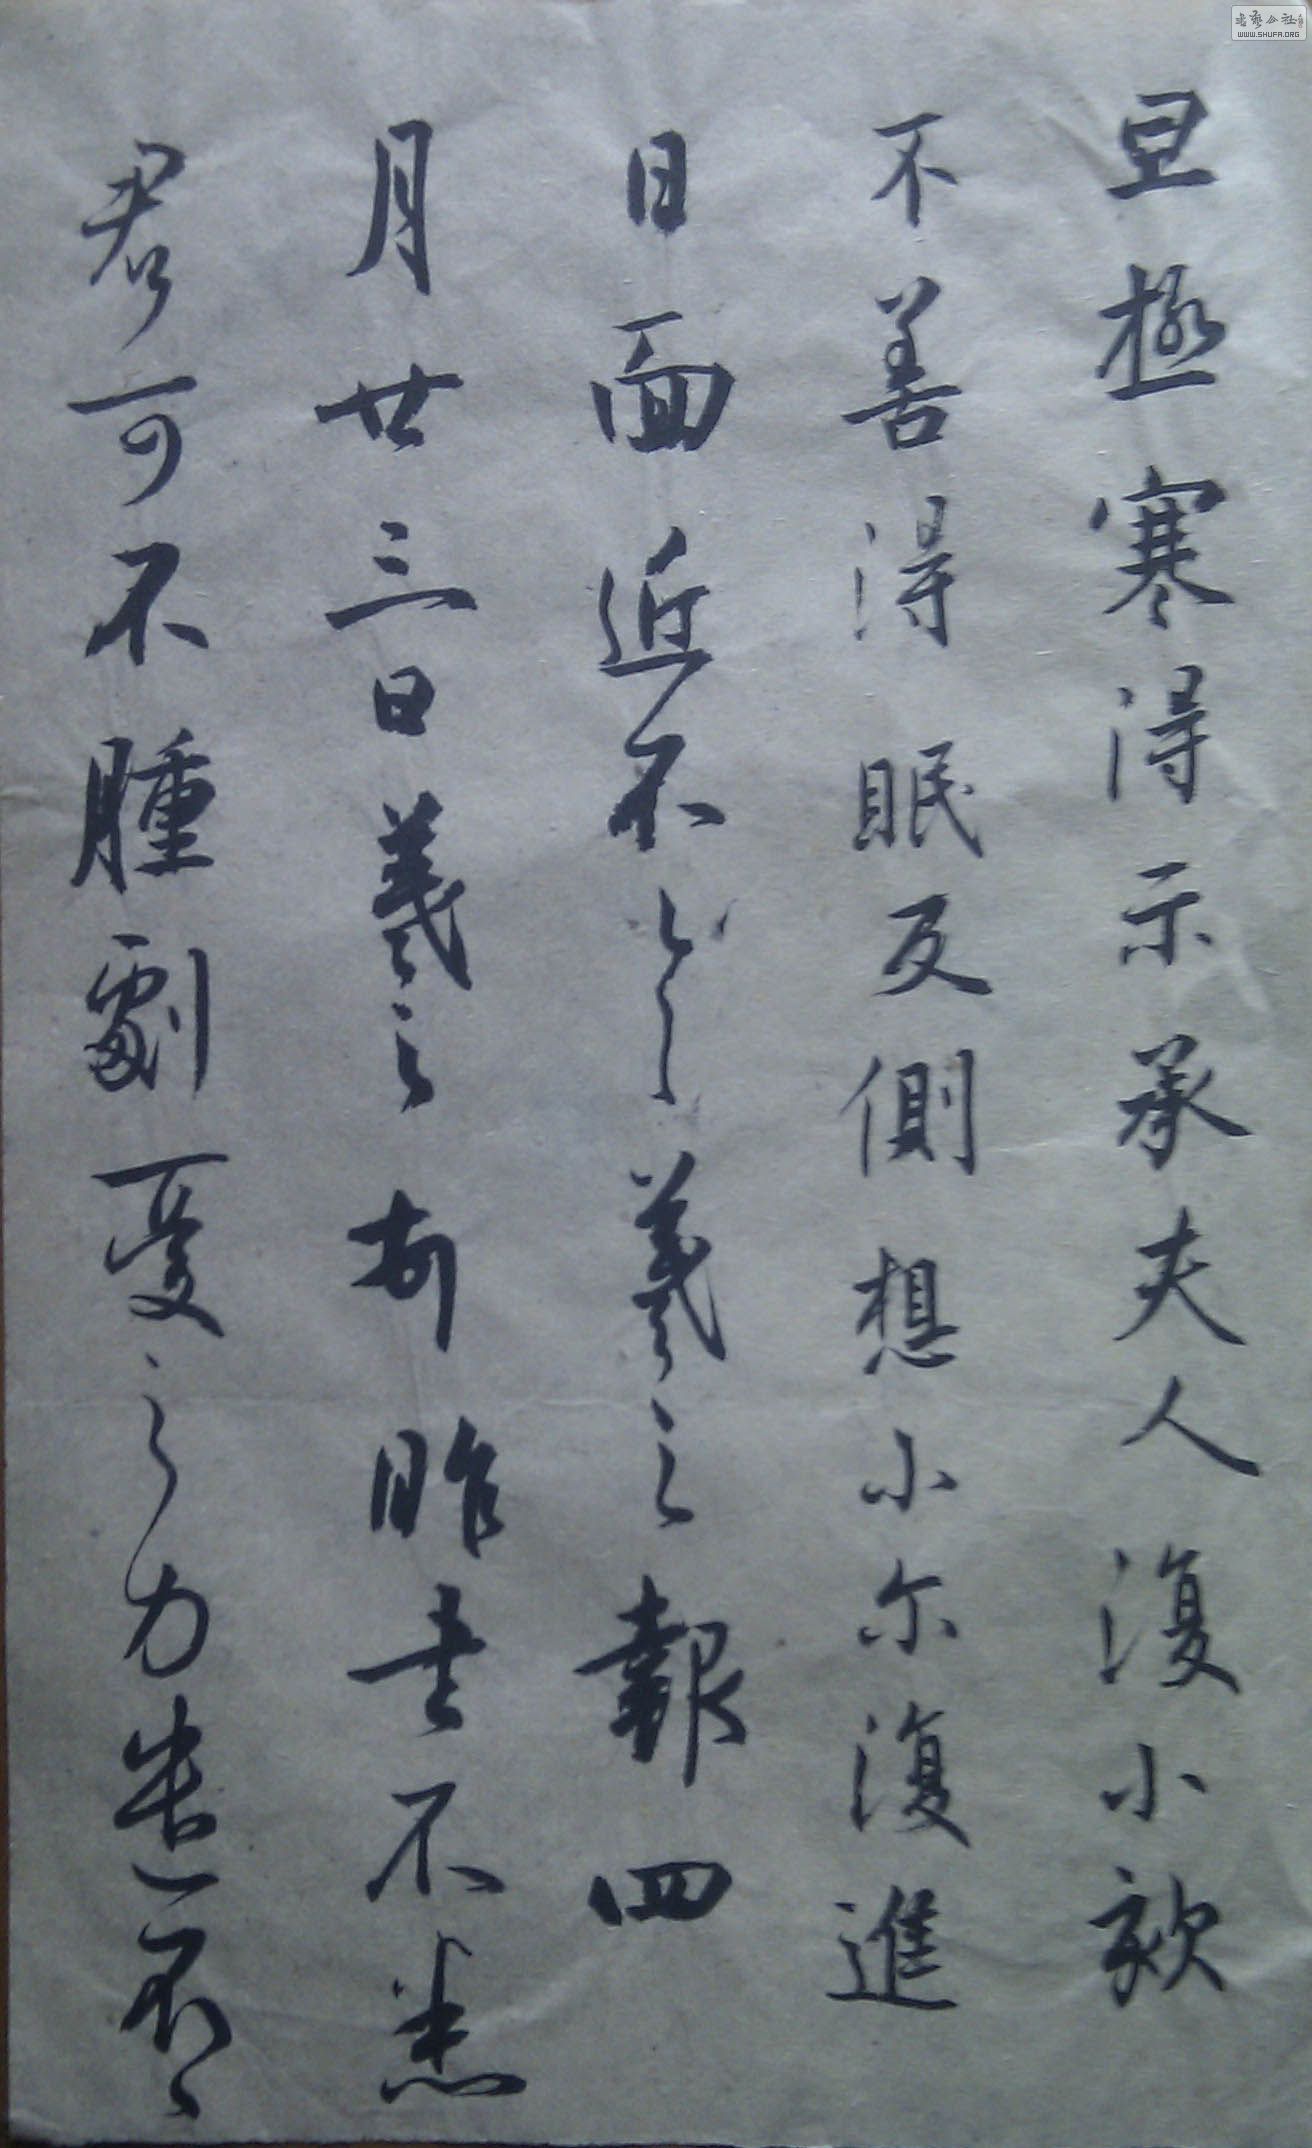 旦極寒得示承夫人復小欬
不善得眠反側想小尓復進
日面近不一一羲之報四
月廿三日羲之頓昨書不悉
君可不腫劇憂之力遣不一一
書藝公社
WWW.SHUFA.ORG